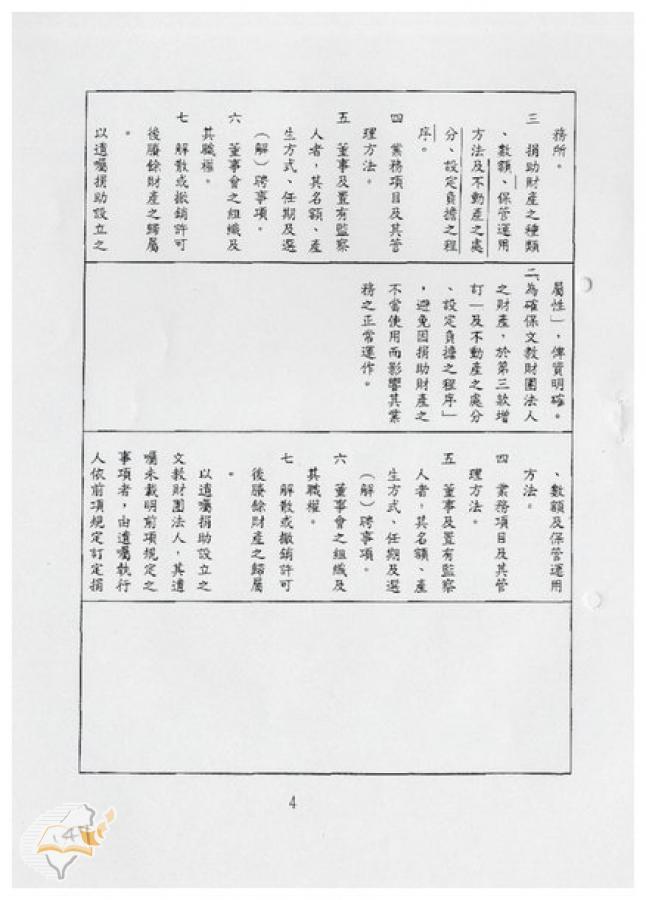 務所。
三　捐助財產之種類
、數額、保管運用
方法及不動產之處
分、設定負擔之程
序。
四　業務項目及其管
理方法。
五　董事及置有監察
人者，其名額、產
生方式、任期及選
（解）聘事項。
六　董事會之組織及
其職權。
七　解散或撤銷許可
後賸餘財產之歸屬
。
以遺囑捐助設立之
屬性」，俾資明確。
二、為確保文教財團法人
之財產，於第三款增
訂「及不動產之處分
、設定負擔之程序」
，避免因捐助財產之
不當使用而影響其業
務之正常運作。
、數額及保管運用
方法。
四　業務項目及其管
理方法。
五　董事及置有監察
人者，其名額、產
生方式、任期及選
（解）聘事項。
六　董事會之組織及
其職權。
七　解散或撤銷許可
後賸餘財產之歸屬
。
以遺囑捐助設立之
文教財團法人，其遺
囑未載明前項規定之
事項者，由遺囑執行
人依前項規定訂定捐
4